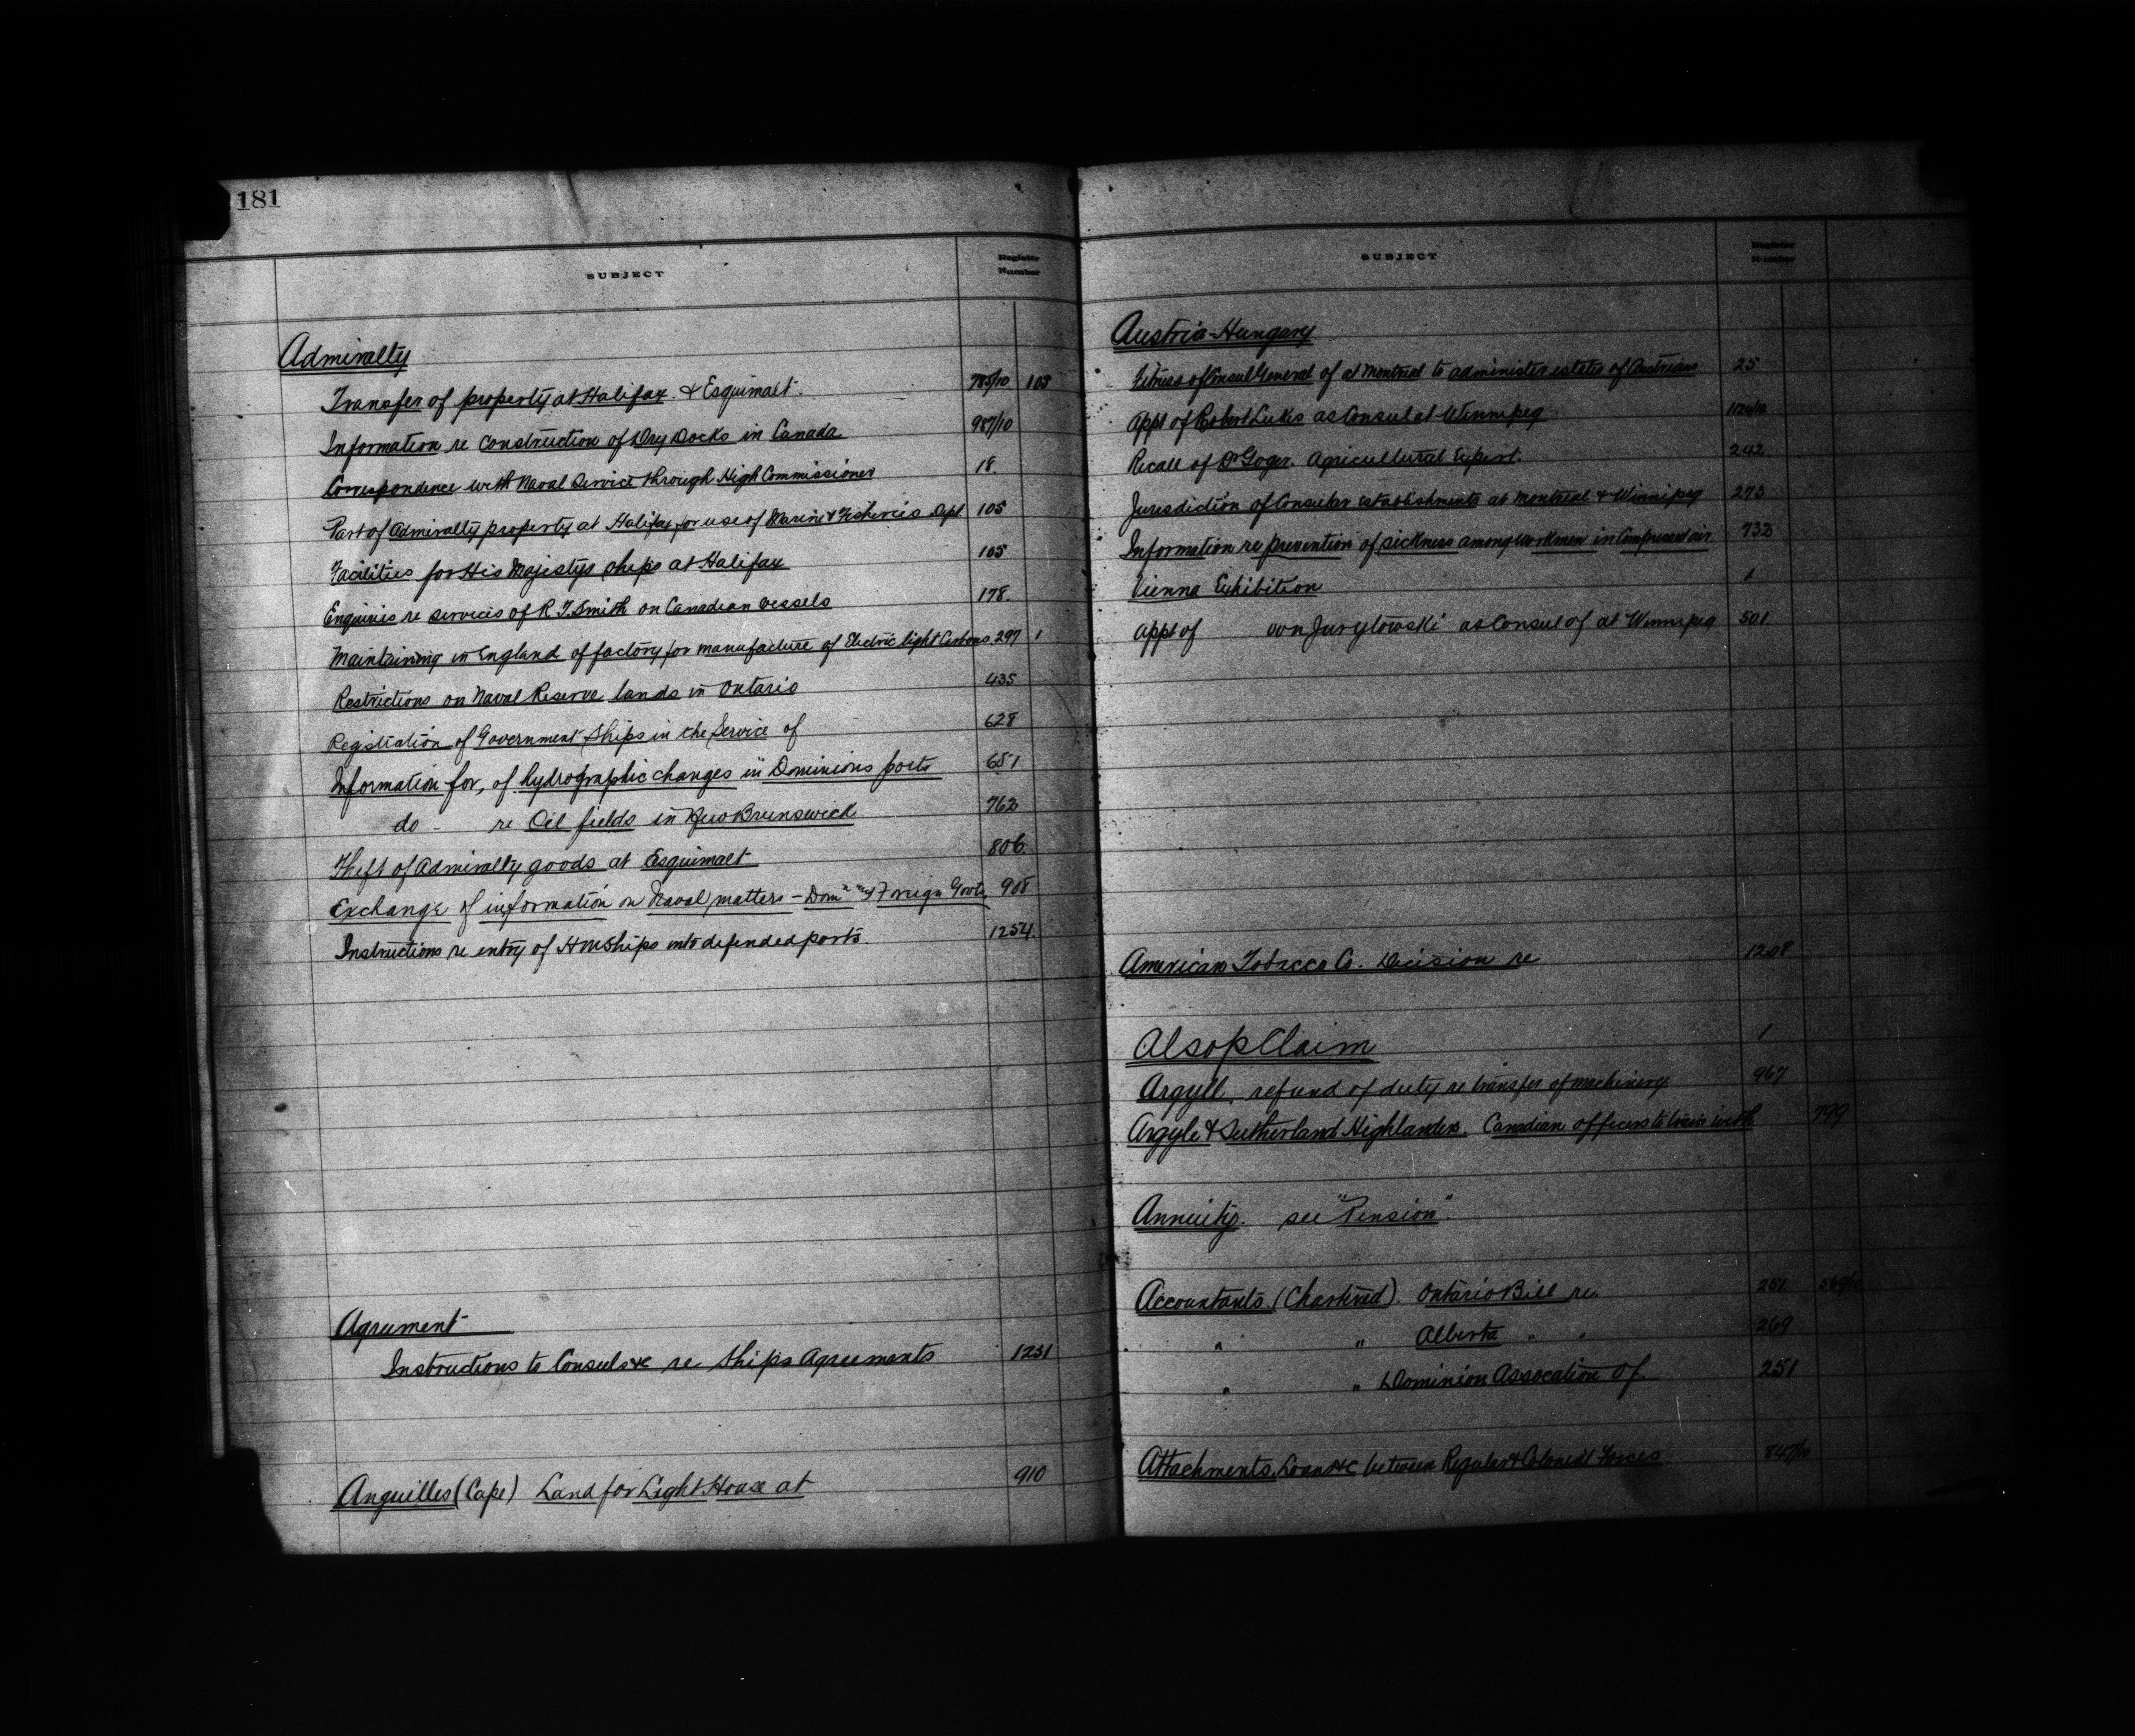 181
SUBJECT Register Number
Admiralty
Transfer of property at Halifax & Esquimalt. 785/10 105
Information re construction of Dry Docks in Canada 987/10
Correspondence with Naval Service through High Commissioner 18.
Part of Admiralty property at Halifax for use of Marine & Fisheries Dept 105
Facilities for His Majestys ships at Halifax 105
Enquiries re services of R. T. Smith on Canadian vessels 178.
Maintaining in England of factory for manufacture of Electric light Carbons. 297 1
Restrictions on Naval Reserve lands in Ontario 435
Registration of Government Ships in the Service of 628
Information for, of hydrographic changes in Dominions ports 651
do - re Oil fields in New Brunswick 762
Theft of Admiralty goods at Esquimalt 806.
Exchange of information on Naval matters - Domn Foreign Govts. 908
Instructions re entry of HM Ships into defended ports. 1254.
Agrument
Instructions to Consuls &c re Ships Agreements 1251
Anguilles (Cape) Land for Light House at 910
SUBJECT Register Number
Austria-Hungary
of Consul General of at Montreal to administer estates of Austrians 25
Appt of Robert as Consul at Winnipeg
Recall of Dr Goger. Agricultural Expert. 242
Jurisdiction of Consular Establishments at Montreal & Winnipeg 273
Information re prevention of sickness among workmen in Compressed air 732
Vienna Exhibition 1
Appt of von as Consul of at Winnipeg 501
American Tobacco Co. Decision re 1208
Alsop Claim 1
Argyll, refund of duty re transfer of machinery 967
Argyle & Sutherland Highlanders. Canadian officers to train with 799
Annuity. see "Pension".
Accountants. (Chartered). Ontario Bill re. 251
" " Alberta " " 269
" " Dominion Assocation of 251
Attachments, Loans &c between Regular & Colonial Forces 847/10